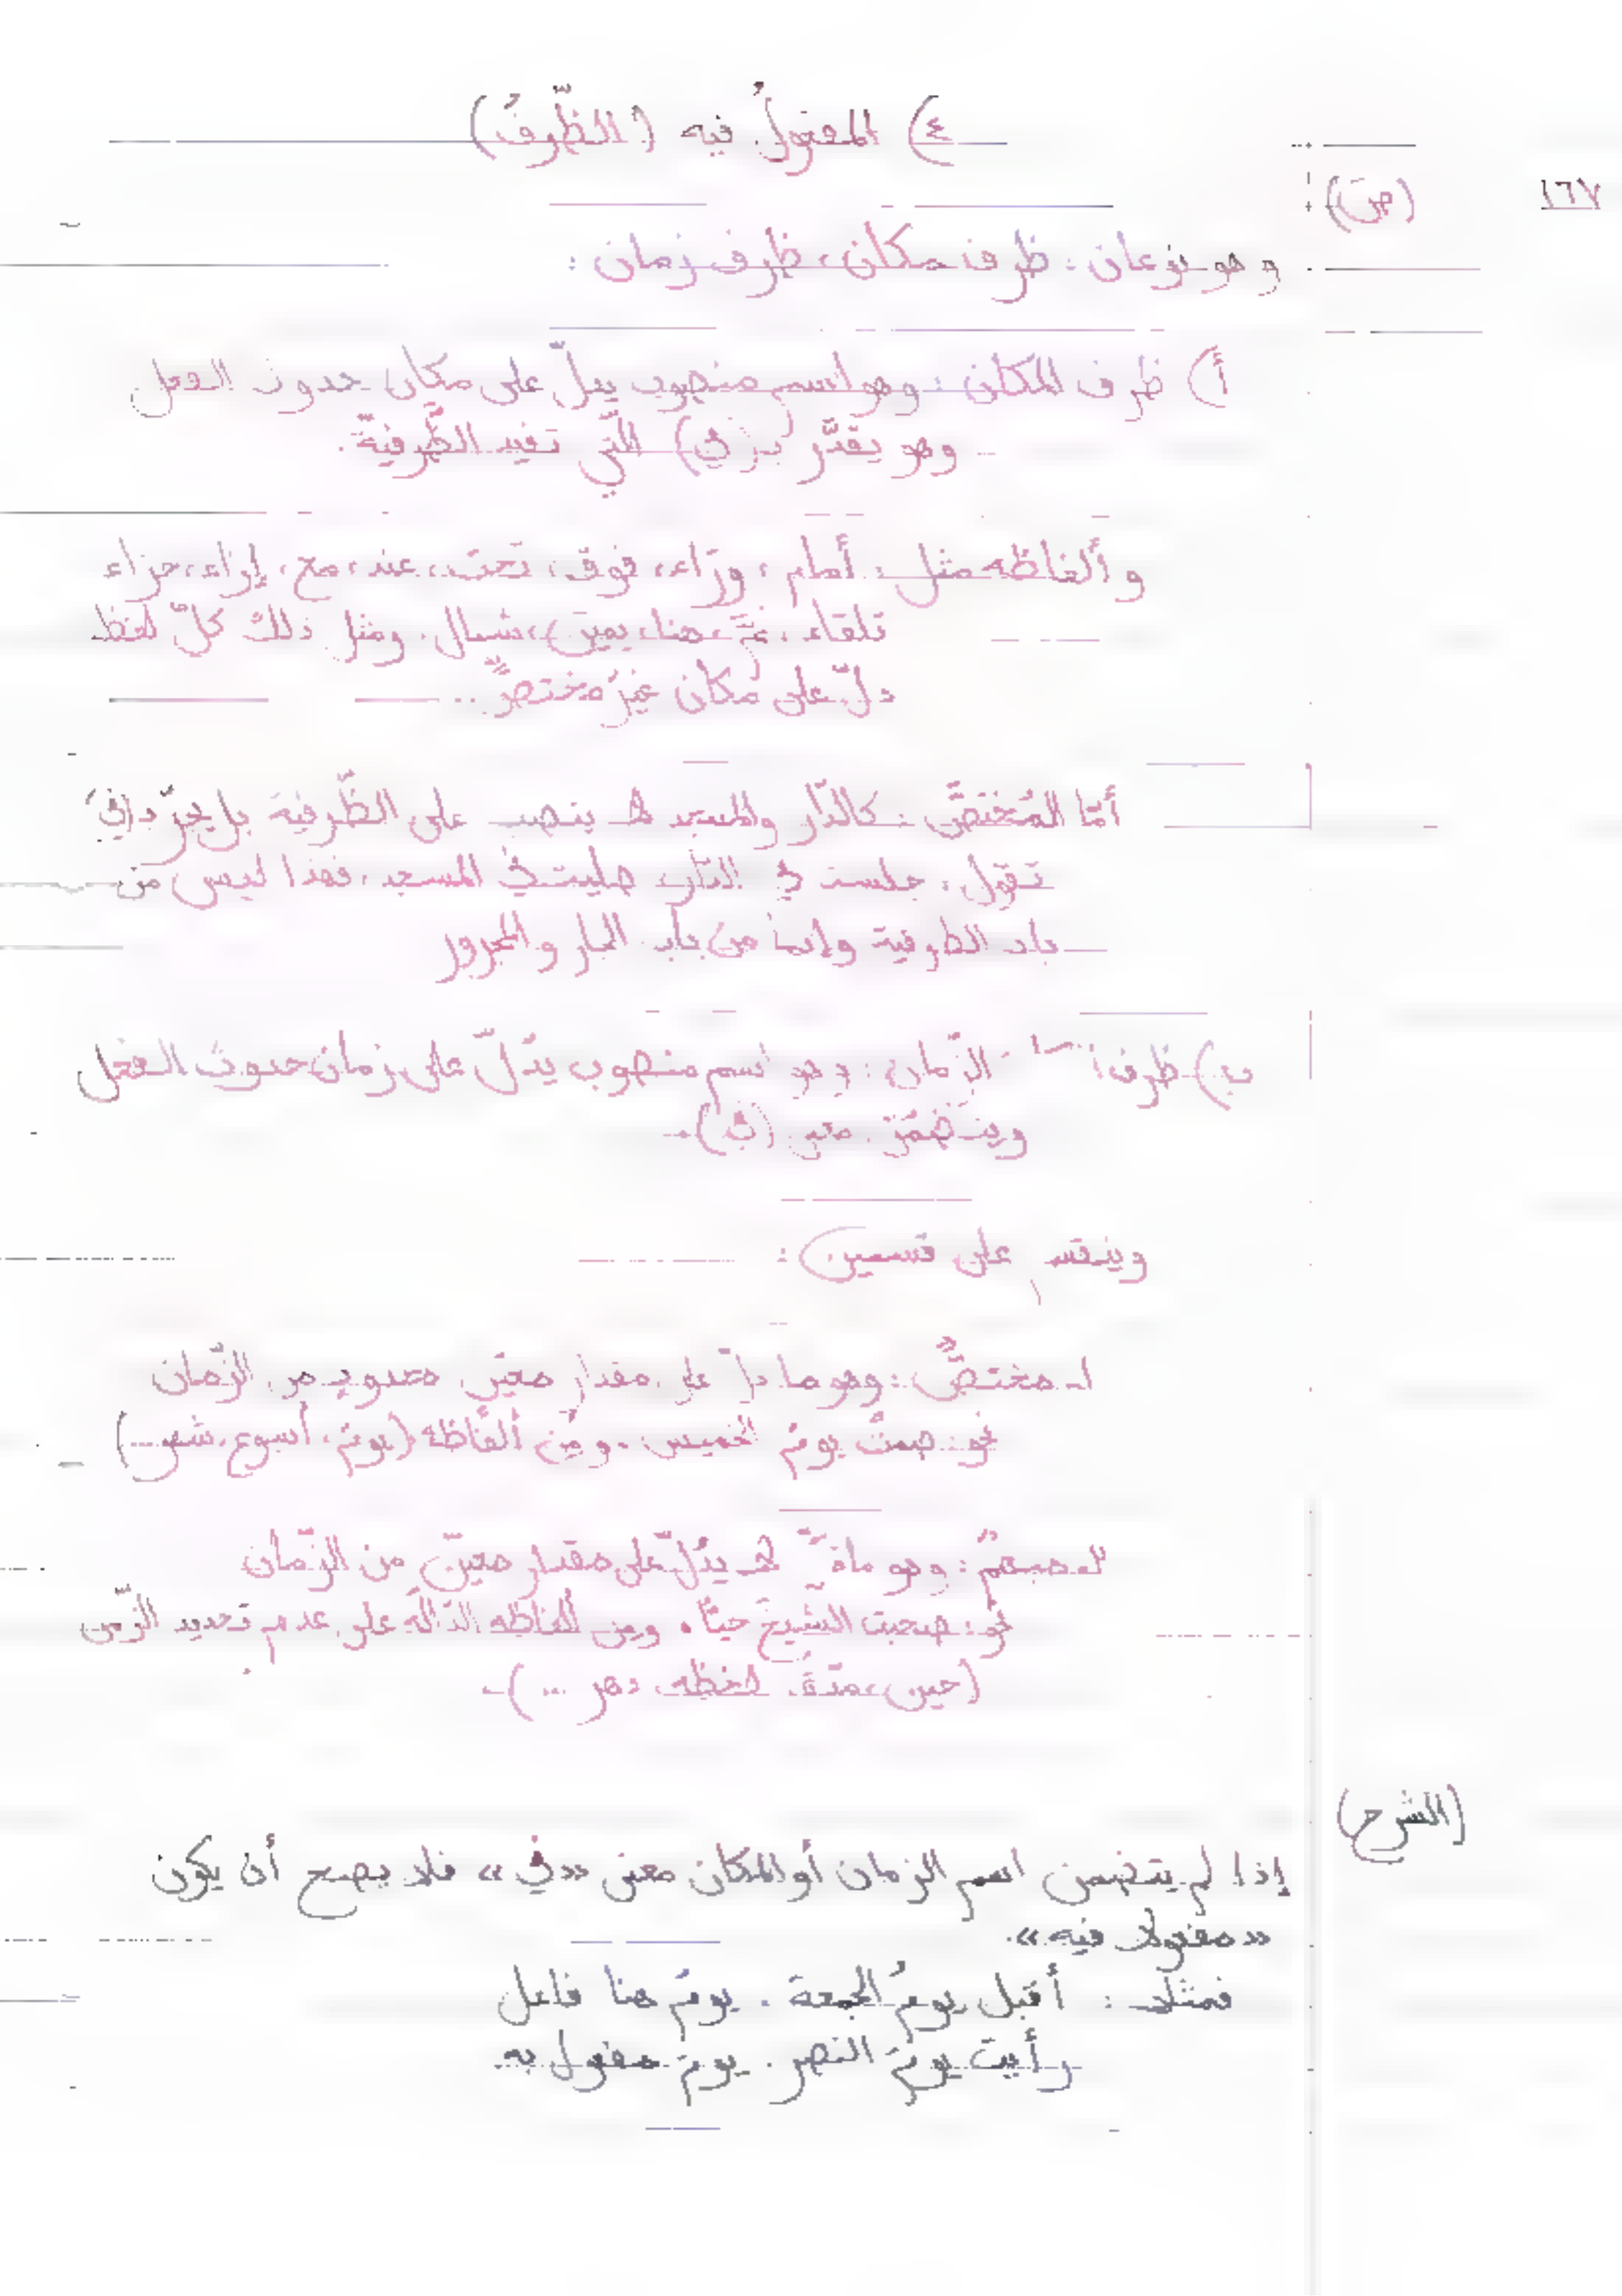 ٤) المفعولُ فيه (الظّرفُ)
١٦٧
(ص)
وهو نوعان: ظرف مكان، ظرف زمان:
أ) ظرف المكان: وهو اسم منصوب يدلّ على مكان حدوث الفعل
وهو يقدَّر بـ(في) الّتي تفيد الظّرفيةَ.
وألفاظه مثل: أمام، وراء، فوق، تحت، عند، مع، إزاء، حزاء
تلقاء، ثمَّ، هنا، يمين، شمال. ومثل ذلك كلّ لفظ
دلّ على مكان غيرُ مختصٍّ..
أمّا المُختَصّ: كالدّار والمسجد لا ينصب على الظّرفية بل يجرّ بـ(في)
تقول: جلست في الدّار، صليت في المسجد، فهذا ليس من
باب الظرفية وإنما من باب الجار والمجرور
ب) ظرف الزّمان: وهو اسم منصوب يدُلّ على زمان حدوث الفعل
ويتضَمَّن معنى (في).
وينقسم على قسمين:
١- مختصٌّ: وهو ما دلّ على مقدار معيّن محدود من الزّمان
نحو: صمتُ يومَ الخميس. ومن ألفاظه (يوم، أسبوع، شهر...)
٢- مبهمٌ: وهو ما لا يدُلّ على مقدار معيّن من الزّمان
نحو: صحبت الشّيخَ حيناً. ومن ألفاظه الدّالّة على عدم تحديد الزّمن
(حين، مدّة، لحظة، دهر ...).
(الشرح)
إذا لم يتضمن اسم الزمان أو المكان معنى «في» فلا يصح أن يكون
«مفعولا فيه».
فمثلا: أقبل يومُ الجمعة. يومُ هنا فاعل
رأيت يومَ النصر. يومَ مفعول به